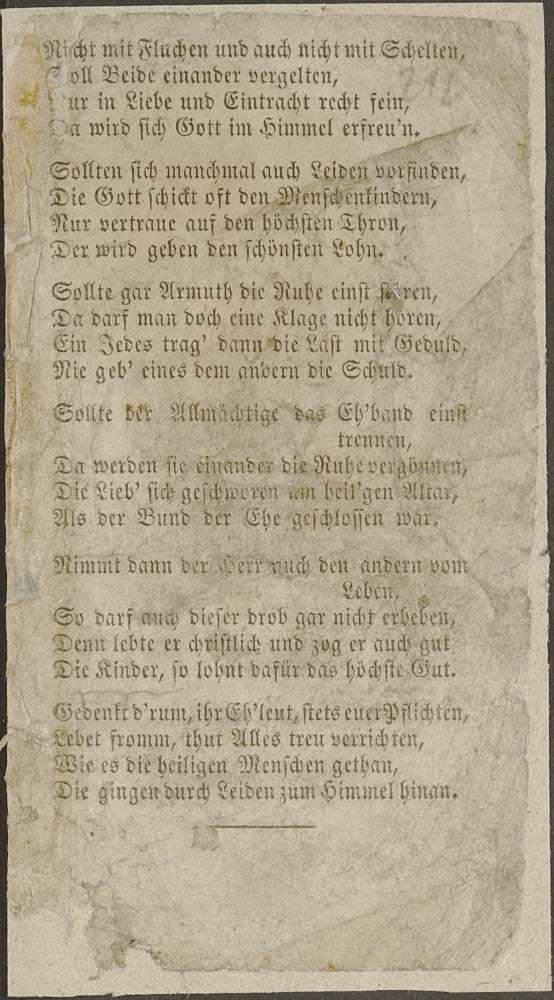 Nicht mit Fluchen und auch nicht mit Schelten,
Soll Beide einander vergelten,
Nur in Liebe und Eintracht recht fein,
Da wird sich Gott im Himmel erfreu'n.
Sollten sich manchmal auch Leiden vorfinden,
Die Gott schickt oft den Menschenkindern,
Nur vertraue auf den höchsten Thron,
Der wird geben den schönsten Lohn.
Sollte gar Armuth die Ruhe einst stören,
Da darf man doch eine Klage nicht hören,
Ein Jedes trag' dann die Last mit Geduld,
Nie geb' eines dem andern die Schuld.
Sollte der Allmächtige das Eh'band einst
trennen,
Da werden sie einander die Ruhe vergönnen,
Die Lieb' sich geschworen am heil'gen Altar,
Als der Bund der Ehe geschlossen war.
Nimmt dann der Herr auch den andern vom
Leben,
So darf auch dieser drob gar nicht erbeben,
Denn lebte er christlich und zog er auch gut
Die Kinder, so lohnt dafür das höchste Gut.
Gedenkt d'rum, ihr Eh'leut, stets euer Pflichten,
Lebet fromm, thut Alles treu verrichten,
Wie es die heiligen Menschen gethan,
Die gingen durch Leiden zum Himmel hinan.